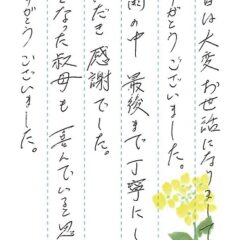 日は大変お世話になりまし
がとうございました。
雨の中 最後まで丁寧にし
だき 感謝でした。
となった叔母も喜んでいると思
がとうございました。